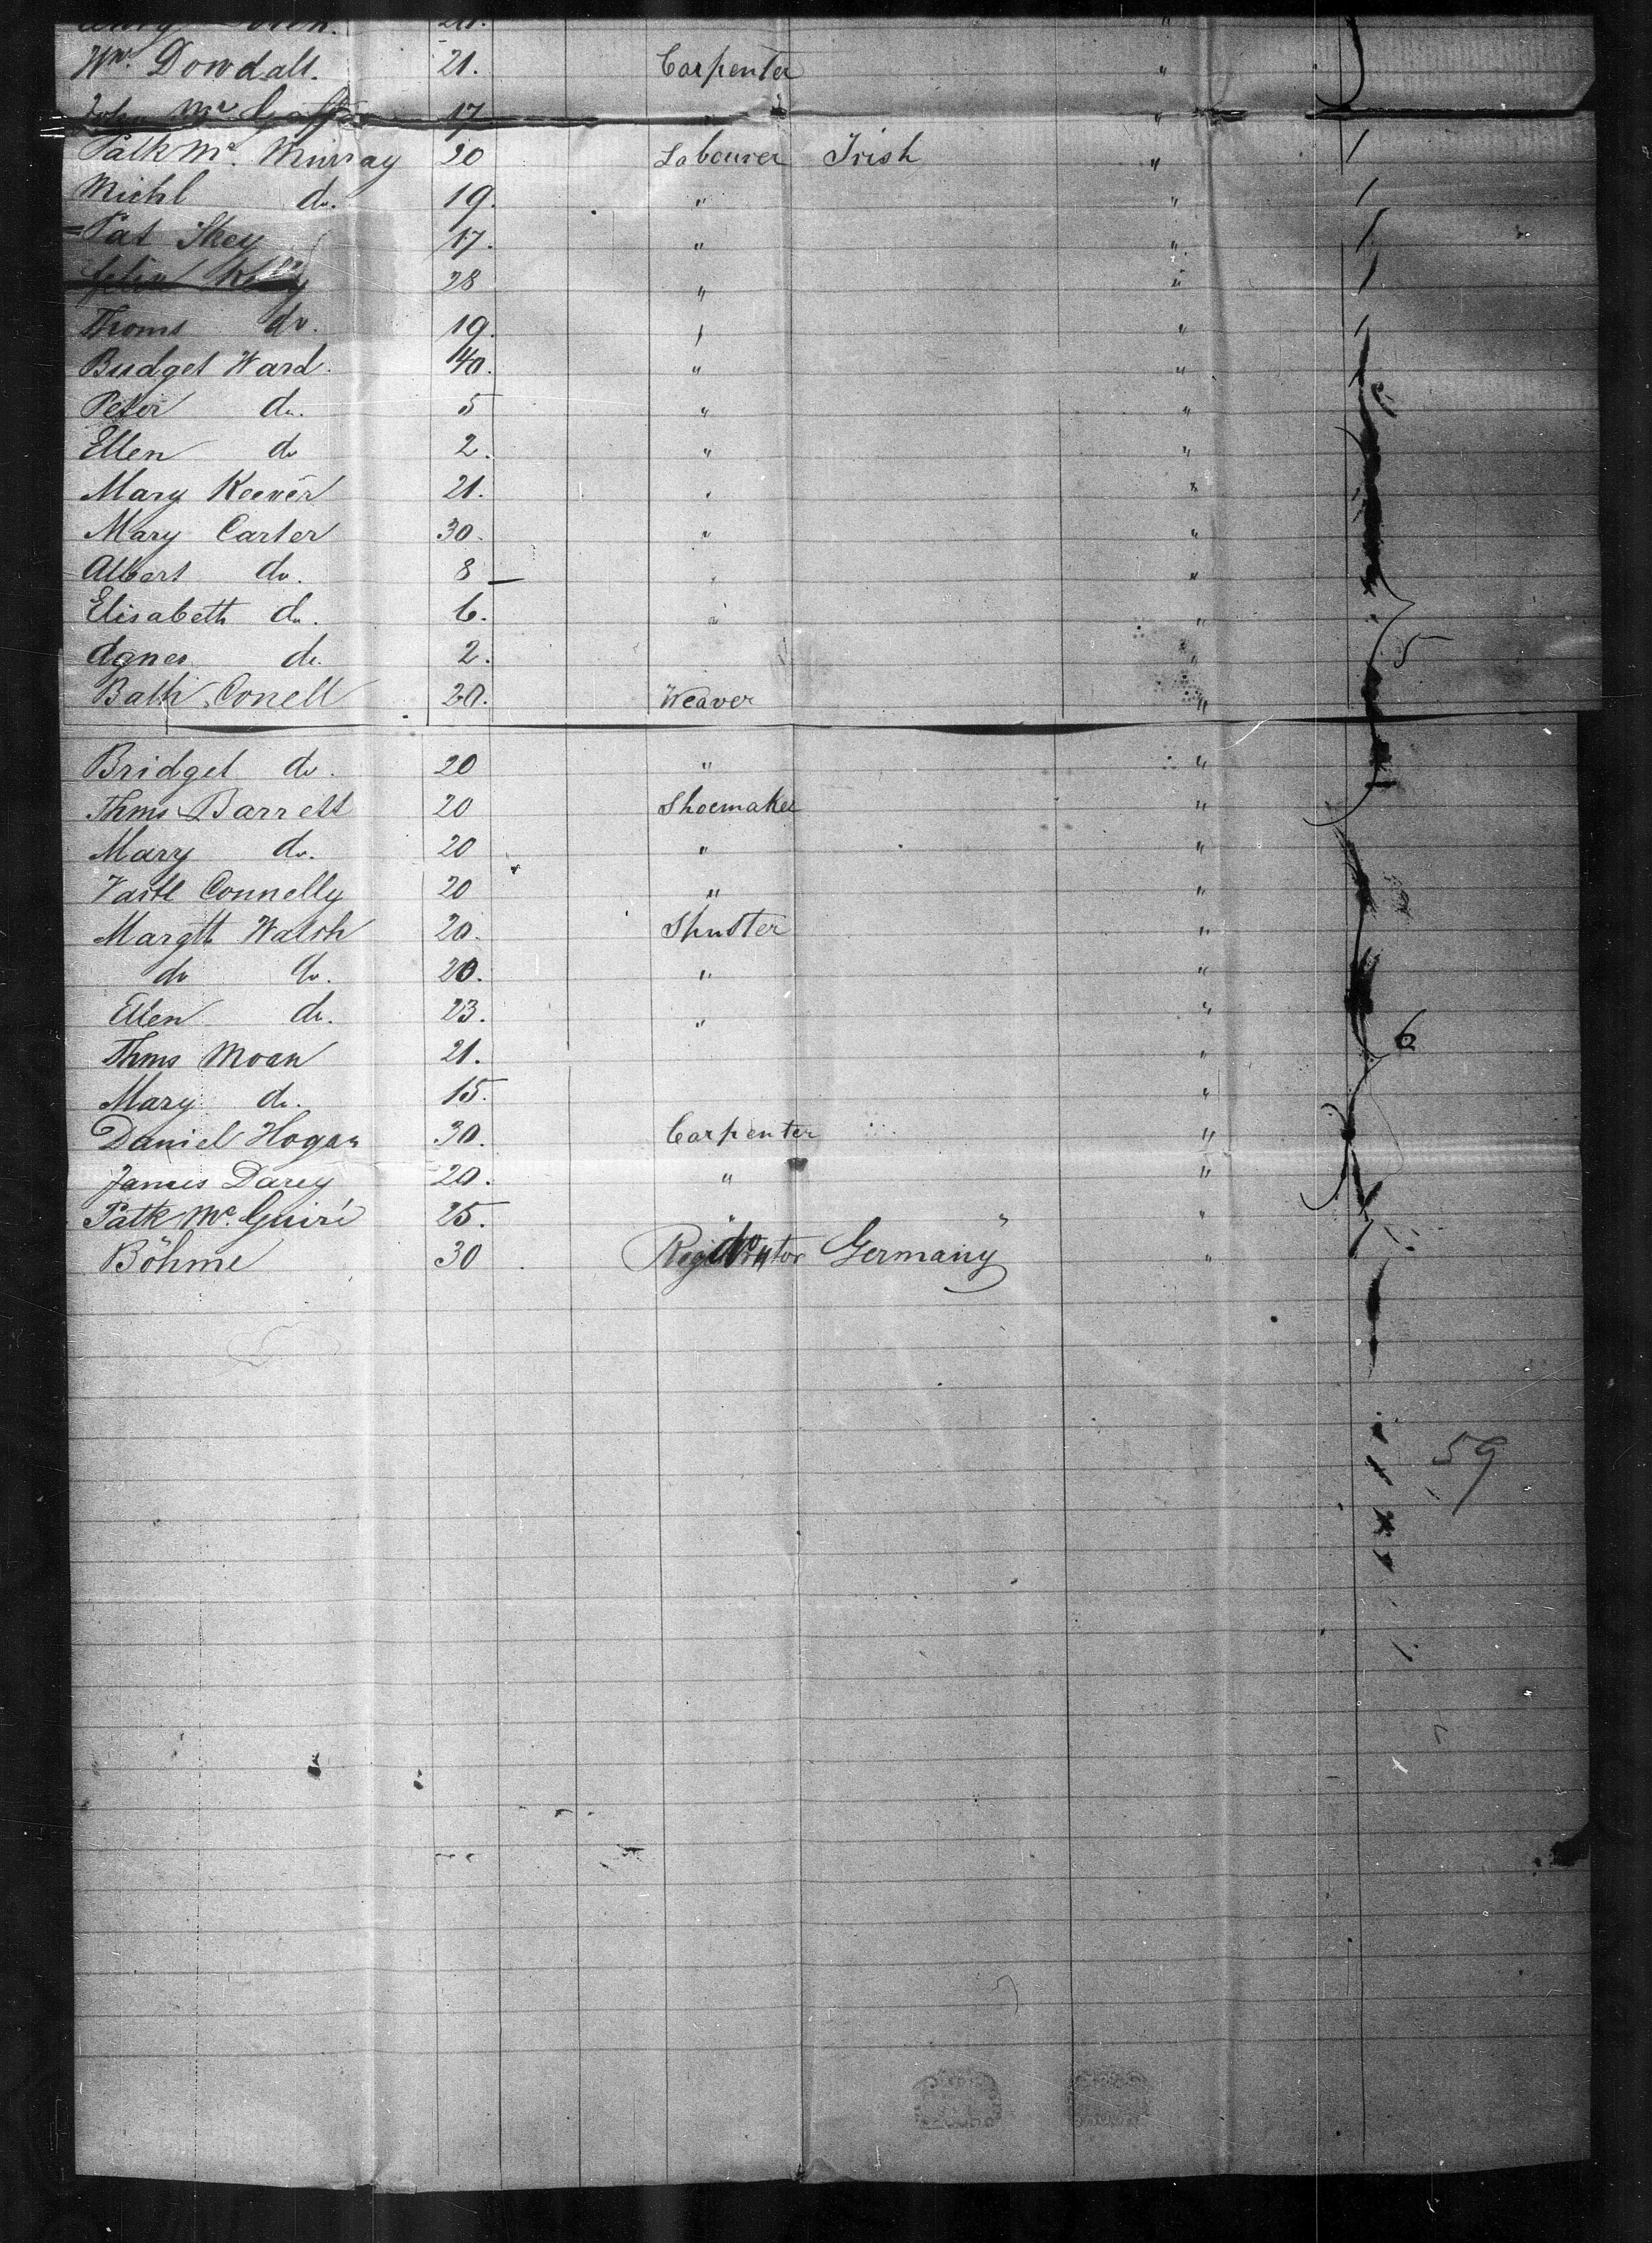 20. "
Wm. Dowdall. 21. Carpenter "
John Mc 17. " "
Patk Mc. Murray 20 Labourer Irish " 1
Michl do. 19. " " 1
Pat Skey 17. " " 1
Kelly 28 " " 1
Thoms do. 19. " " 1
Budget Ward. 40. " "
Peter do. 5 " "
Ellen do 2. " "
Mary Keever 21. " "
Mary Carter 30. " "
Albert do. 8 " "
Elisabeth do. 6. " "
Agnes do. 2. " " 5
Bath Conell 20. Weaver "
Bridget do. 20 " "
Thms Barrett 20 Shoemaker "
Mary do. 20 " "
Connelly 20 " "
Margtt Walsh 20. Shuster "
do do. 20. " "
Ellen do. 23. " "
Thms Moan 21. " 6
Mary do. 15. "
Daniel Hogan 30. Carpenter "
James Darcy 20. " "
Patk Mc. Guiré 25. " " "
Böhme 30 Registrator Germany "
59